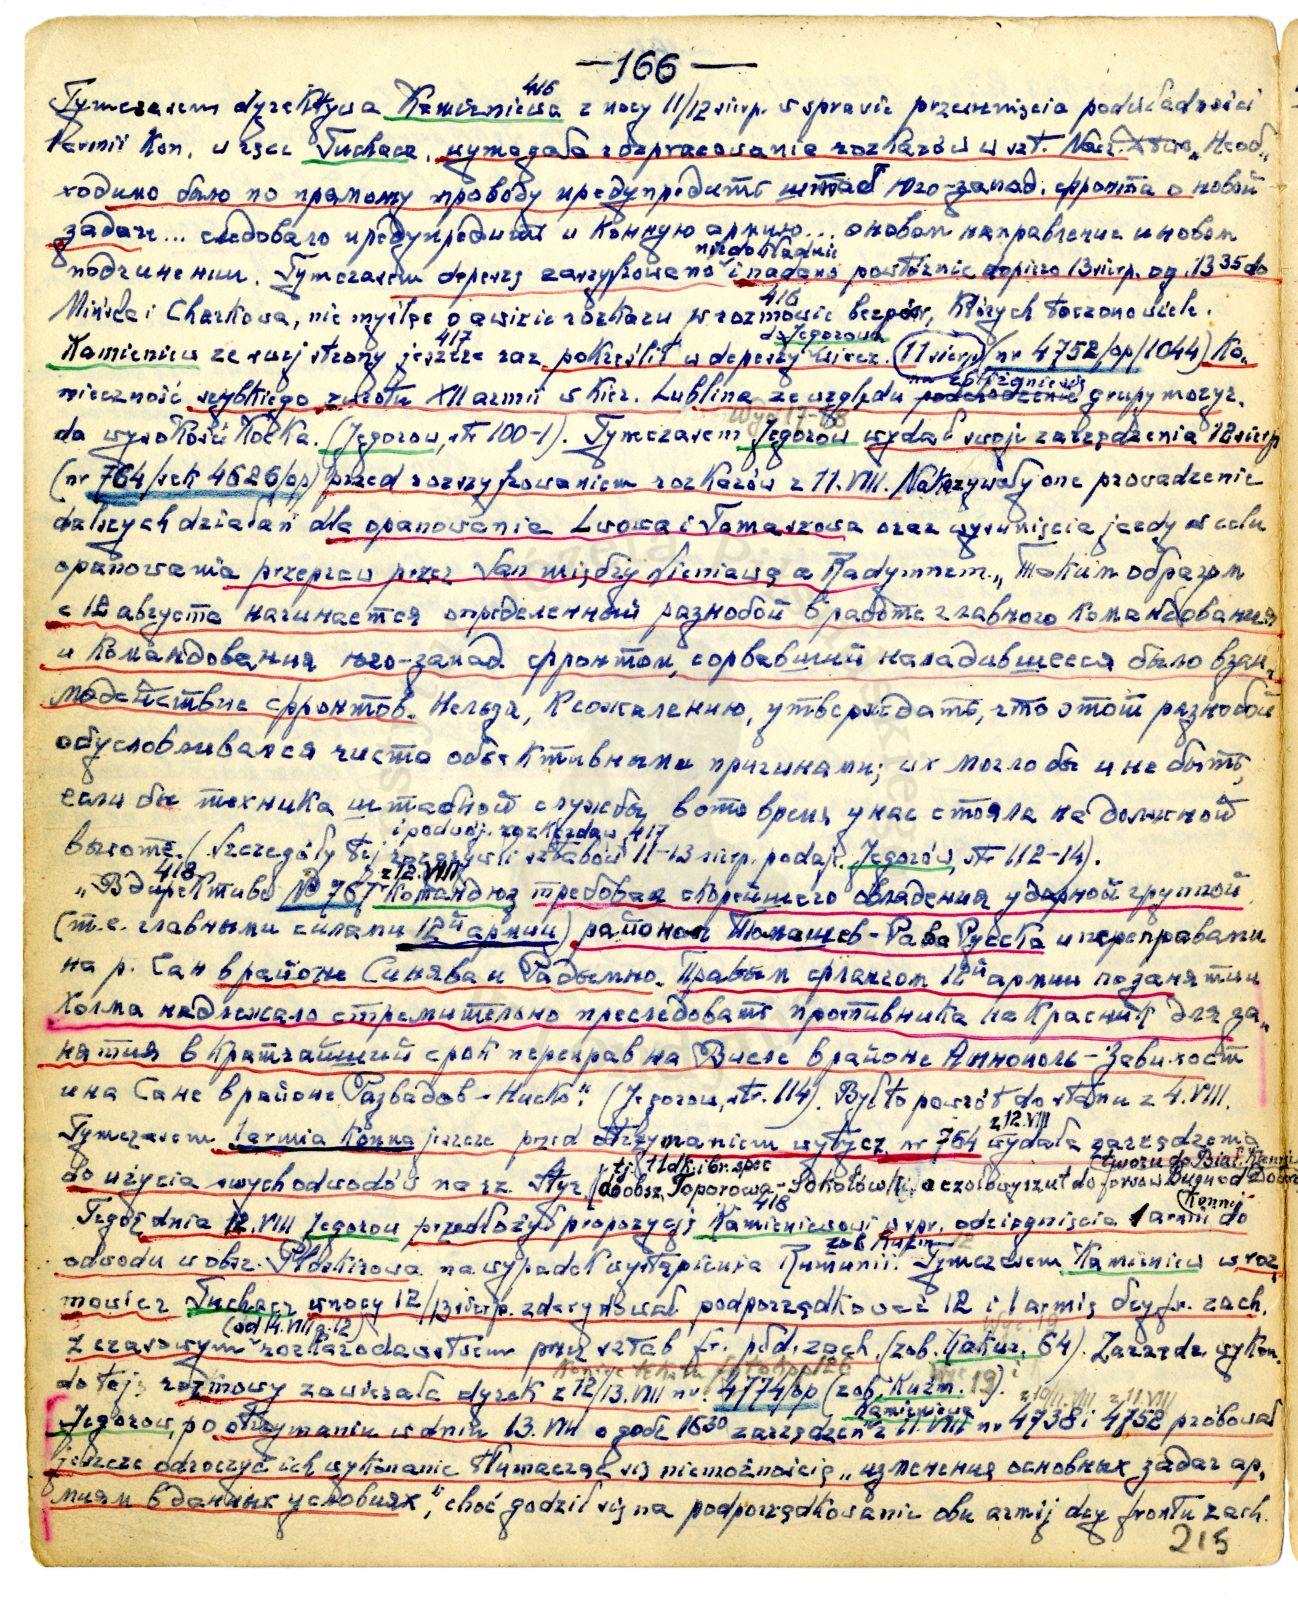 —166—
416
Tymczasem dyrektywa Kamieniewa z nocy 11/12 sierp. w sprawie przesunięcia podwładności
1 armii Kon. w ręce Tuchacz. wymagała rozpracowania rozkazów w szt. Nacz. „Необ-
ходимо было по прямому проводу предупредить штаб юго-запад. фронта о новой
задаче... следовало предупредить и Конную армию... о новом направлении и новом
niedokładnie
подчинении. Tymczasem depeszę zaszyfrowano i nadano powtórnie dopiero 13 sierp. og. 13 35 do
416
Mińska i Charkowa, nie myśląc o awizie rozkazu w rozmowie bezpośr., których toczono wiele.
417 do Jegorowa
Kamieniew ze swej strony jeszcze raz pokreślił w depeszy wiecz. 11 sierp. (nr 4752/op/1044) ko-
na zbliżanie się
nieczność szybkiego zwrotu XII armii w kier. Lublina ze względu podchodzenie grupy mozyr.
Wyd 17-18
do wysokości Kocka. (Jegorow, str 100-1). Tymczasem Jegorow wydał swoje zarządzenia 12 sierp
(nr 764/sek 4626/op) przed rozszyfrowaniem rozkazów z 11.VIII. Nakazywały one prowadzenie
dalszych działań dla opanowania Lwowa i Tomaszowa oraz wysunięcie jazdy w celu
opanowania przepraw przez San między Sieniawą a Radymnem. „Таким образом
с 12 августа начинается определенный разнобой в работе главного командования
и командования юго-запад фронтом, сорвавший наладившееся было взаи-
модействие фронтов. Нельзя, к сожалению, утверждать, что этот разнобой
обусловливался чисто объективными причинами; их могло бы и не быть,
если бы техника штабной службы в то время у нас стояла на должной
i podwój. rozkazdaw 417
высоте. (Szczegóły tej sztabów 11-13 sierp. podaje Jegorow, str 112-14).
418 z 12.VIII
„В директиве № 764 Командюз требовал скорейшего овладения ударной группой
(т.е. главными силами 12й армии) районом Томашев-Рава Русска и переправами
на р. Сан в районе Синява и Радымно. Правым флангом 12й армии по занятии
Холма надлежало стремительно преследовать противника на Красник для за-
нятия в кратчайший срок переправ на Висле в районе Аннополь-Завихост
и на Сане в районе Развадов-Ниско." (Jegorow, str. 114). Był to powrót do stanu z 4.VIII.
z 12.VIII
Tymczasem 1 armia Konna jeszcze przed otrzymaniem wytycz. nr 764 wydała zarządzenia
tj. 11 dk. i br. spec
do użycia swych odwodów na sz. Styr (do obsz. Toporowa-Sokołówki, a czołowy rzut do forsow Bugu od
418 Konnej
Tegoż dnia 12.VIII Jegorow przedłożył propozycję Kamieniewowi w spr. odciągnięcia 1 armii do
odwodu w obsz. Płoskirowa na wypadek wystąpienia Rumunii. Tymczasem Kamieniew w roz-
mowie z Tuchacz w nocy 12/13 sierp. zdecydował podporządkować 12 i 1 armię dcy fr. zach.
(od 14.VIII g. 12)
z czasowym rozkazodawstwem przez sztab fr. płd. zach. (zob. Kakur. 64). Zarządz wykon.
do tej rozmowy zawierała dyrek z 12/13.VIII nr. 4774/op (zob. Kuźm. 19).
Kamieniewa z 10/11.VIII z 11.VIII
Jegorow, po otrzymaniu w dniu 13.VIII o godz 16 30 zarządzeń z 11.VIII nr 4738 i 4752 próbował
jeszcze odroczyć ich wykonanie tłumacząc się niemożnością „изменения основных задач ар-
миям в данных условиях", choć godził się na podporządkowanie obu armij dcy frontu zach.
215